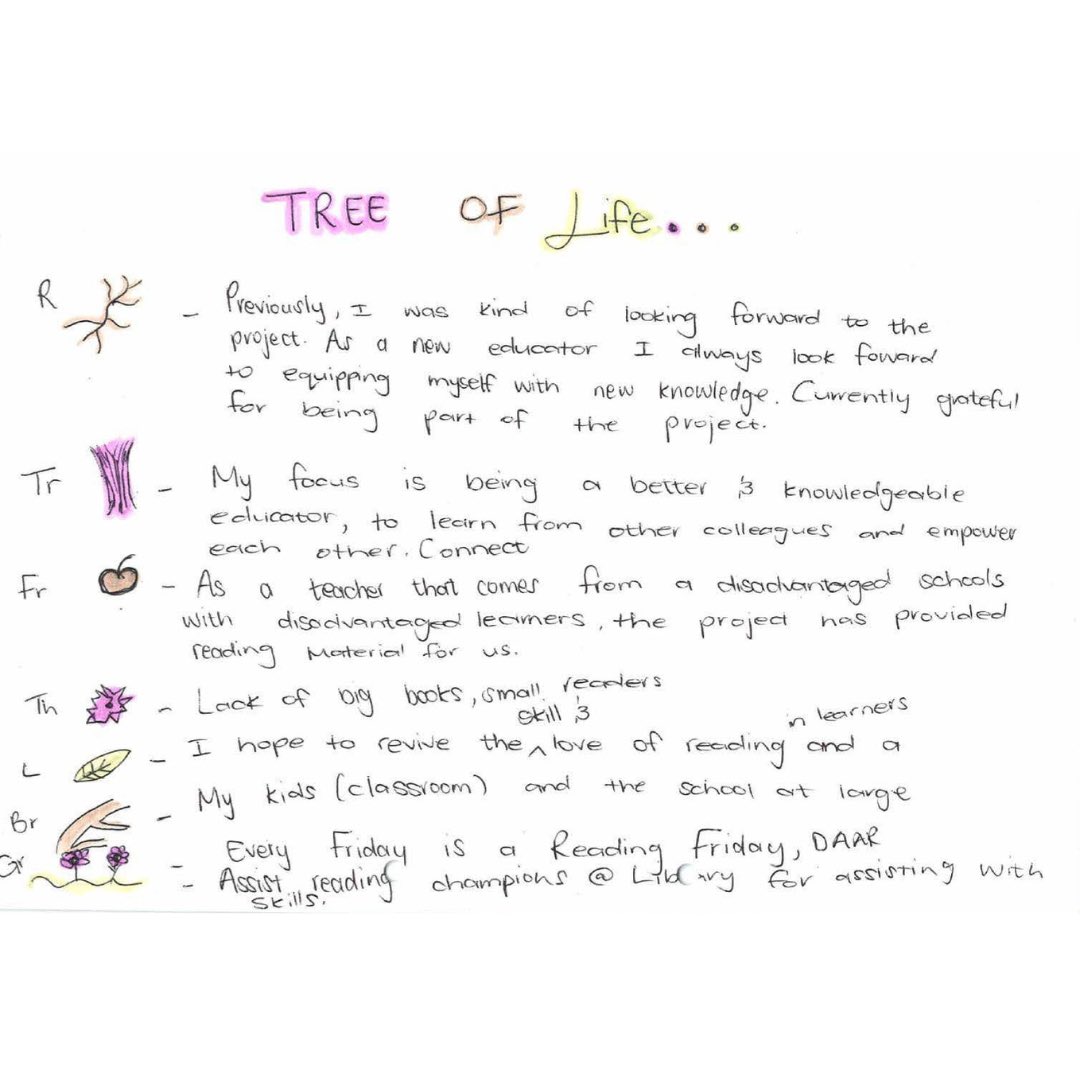 TREE OF Life...
R - Previously, I was kind of looking forward to the
project. As a new educator I always look foward
to equipping myself with new knowledge. Currently grateful
for being part of the project.
Tr - My focus is being a better & knowledgeable
educator, to learn from other colleagues and empower
each other. Connect
Fr - As a teacher that comes from a disadvantaged schools
with disadvantaged learners, the project has provided
reading material for us.
Th - Lack of big books, small readers
skill & in learners
L - I hope to revive the ^ love of reading and a
Br - My kids (classroom) and the school at large
Gr - Every Friday is a Reading Friday, DAAR
- Assist reading champions @ Library for assisting with
skills.